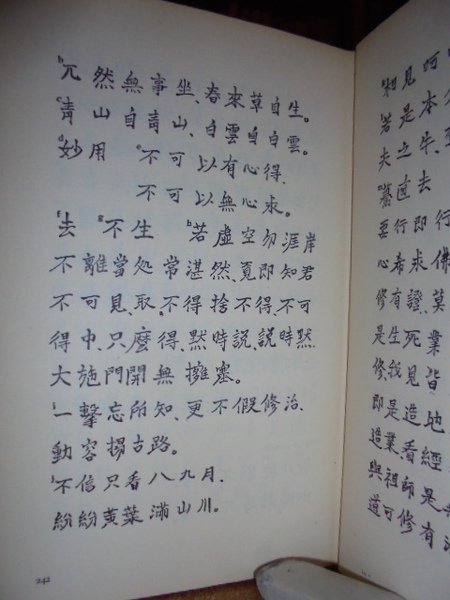 兀然無事坐、春來草自生。
青山自青山、白雲自白雲。
妙用 不可以有心得、
不可以無心求。
去 不生 若虛空勿涯岸
不離當処常湛然、覓即知君
不可見、取、不得捨不得、不可
得中、只麼得、黙時説、説時黙
大施門開無擁塞。
一擊忘所知、更不假修治、
動容揚古路。
不信只看八九月、
紛紛黃葉滿山川。
242
和見呵
若是本
夫之牛、
驀直去
要行即行
心希求佛
修有證、莫
是生死業
修、我見皆
即是造地
造業、看經
與祖師是
道可修有